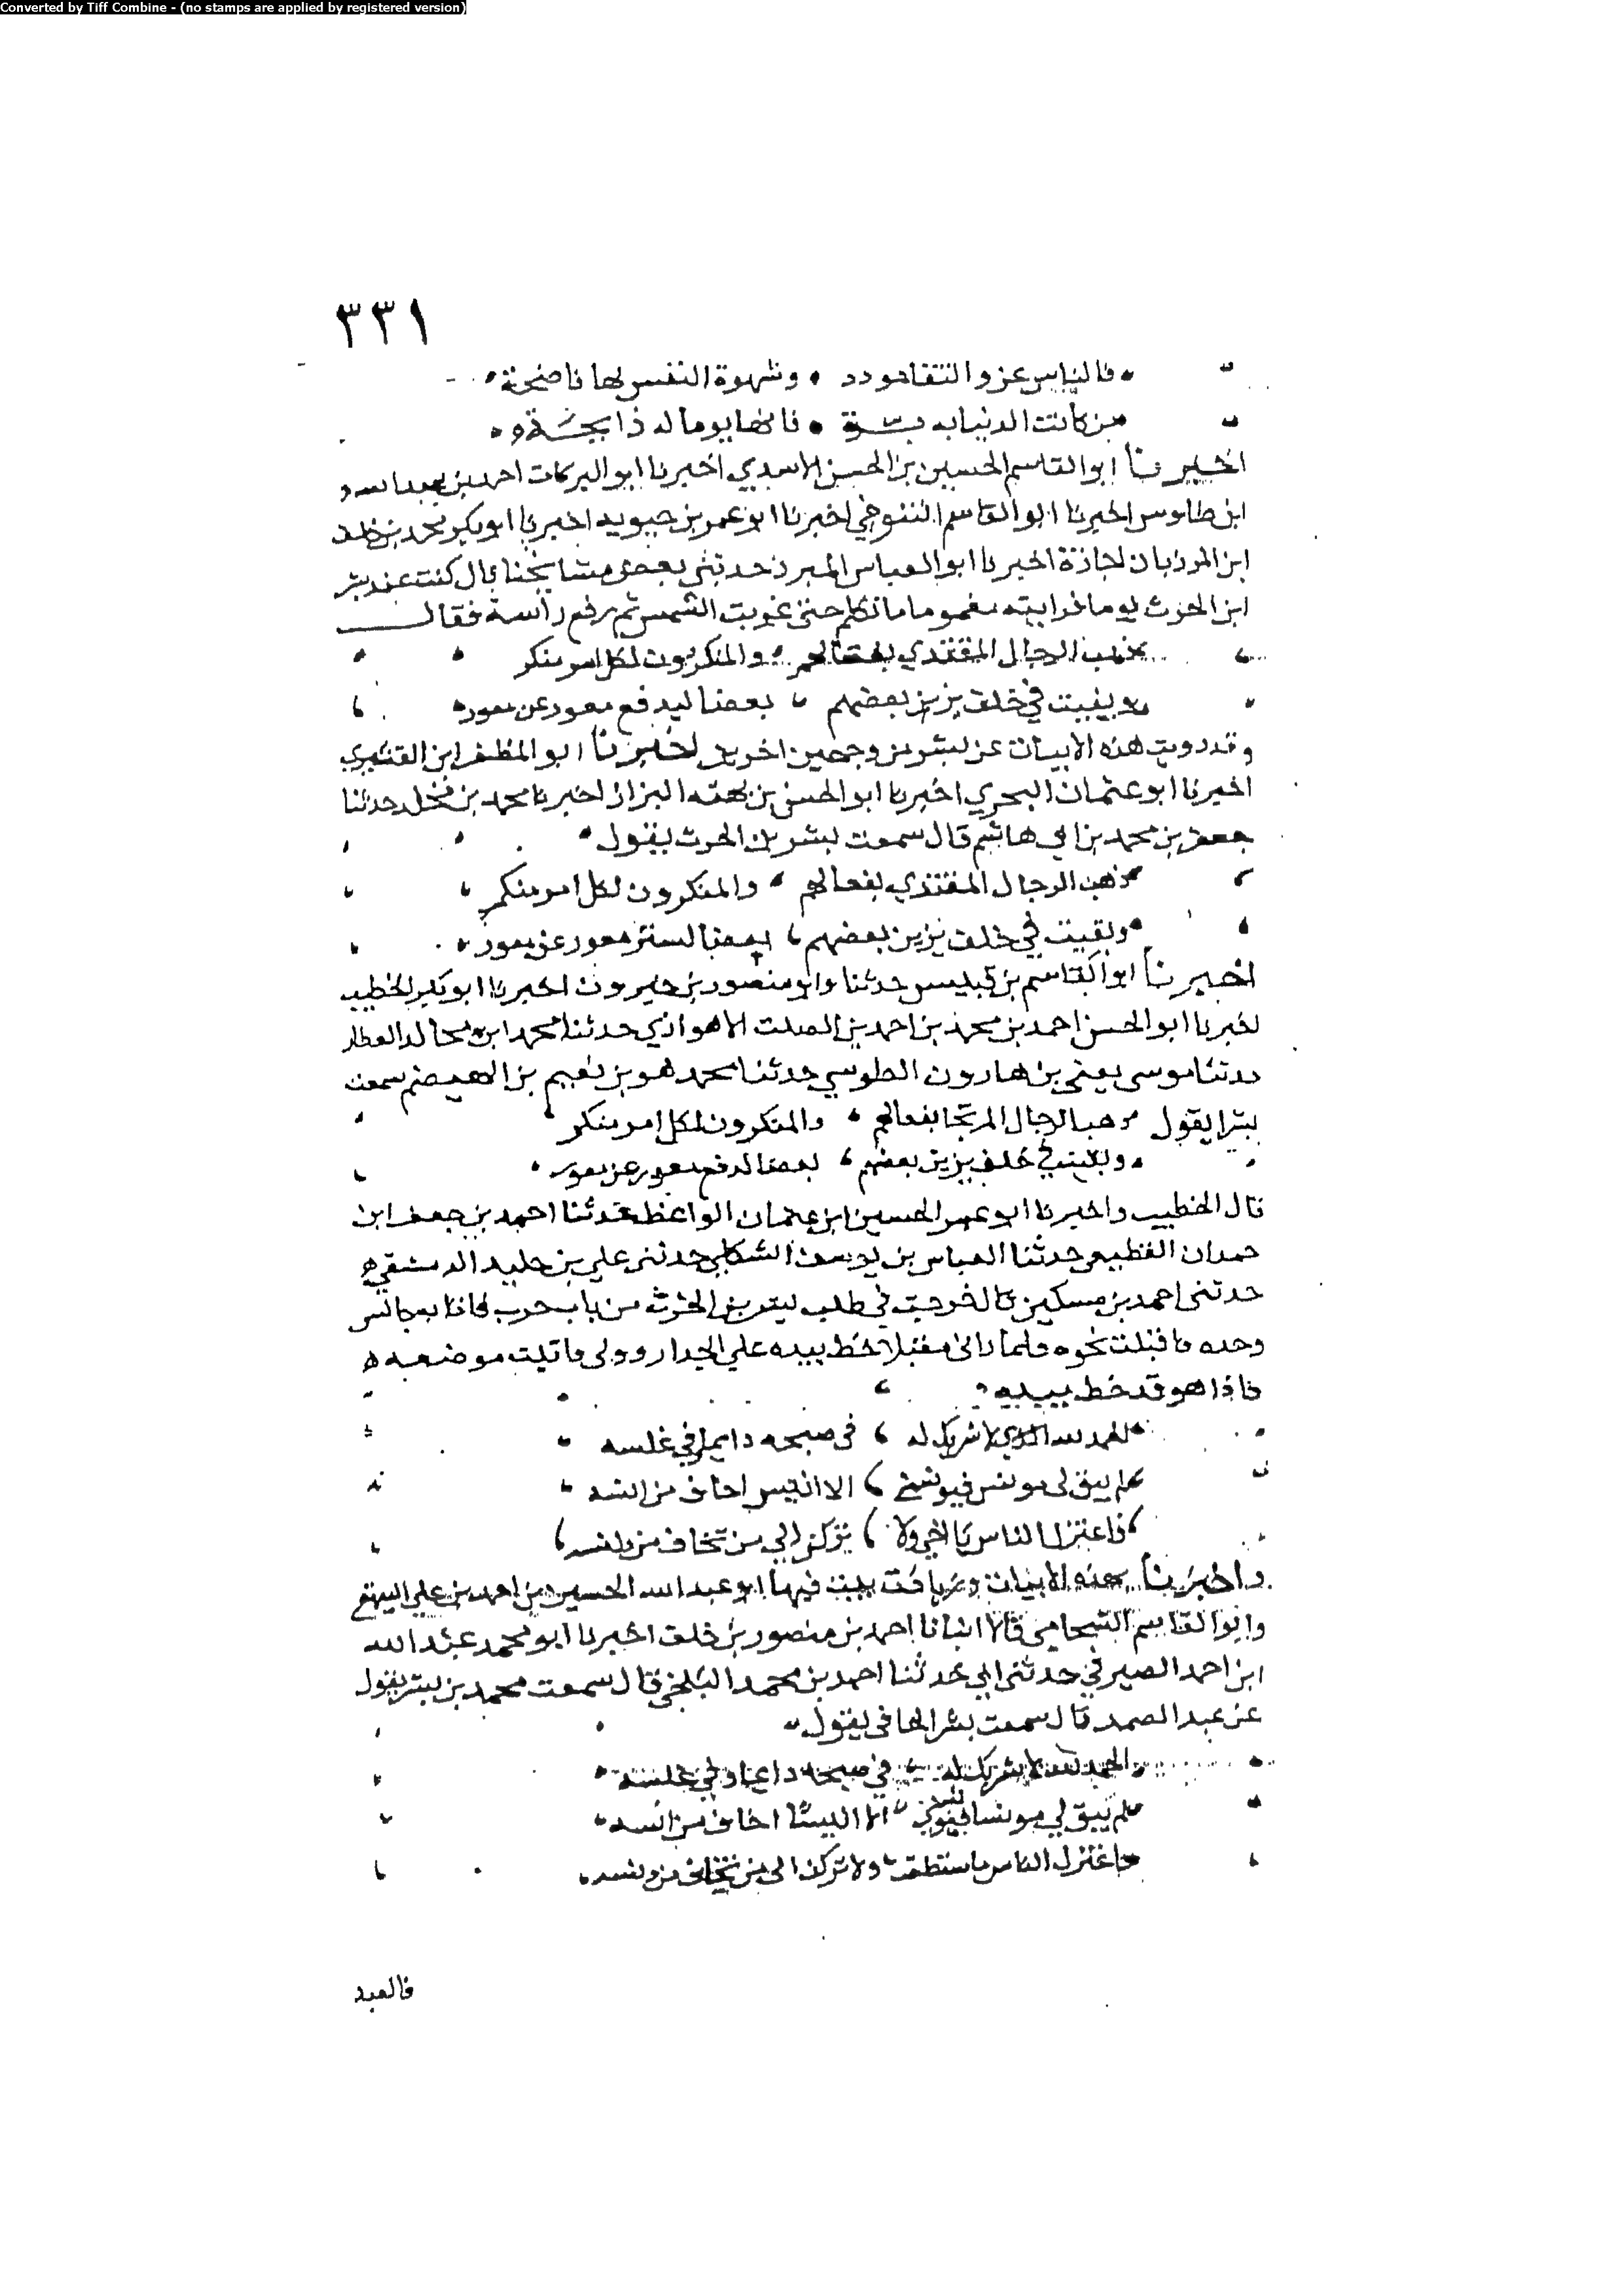 Converted by Tiff Combine - (no stamps are applied by registered version)
٣٣١
فالياس عز والتقا سودد وشهوة النفس لها فاضحة
من كانت الدنيا به برة فانها يوما له ذابحة
اخبرنا ابو القاسم الحسين بن الحسن الاسدي اخبرنا ابو البركات احمد بن عبد الله
ابن طاوس اخبرنا ابو القاسم التنوخي اخبرنا ابو عمر بن حيويه اخبرنا ابو بكر محمد بن خلف
ابن المرزبان اجازة اخبرنا ابو العباس المبرد حدثني بعض مشايخنا قال كنت عند بشر
ابن الحرث يوما فرايته مغموما ما تكلم حتى غربت الشمس ثم رفع راسه فقال
ذهب الرجال المقتدي بفعالهم والمنكرون لكل امر منكر
وبقيت في خلف يزين بعضهم بعضا ليدفع معور عن معور
وقد رويت هذه الابيات عن بشر من وجهين اخرين اخبرنا ابو المظفر ابن القشيري
اخبرنا ابو عثمان البحري اخبرنا ابو الحسن بن البزاز اخبرنا محمد بن مخلد حدثنا
جعفر بن محمد بن ابي هاشم قال سمعت بشر بن الحرث يقول
ذهب الرجال المقتدي بفعالهم والمنكرون لكل امر منكر
وبقيت في خلف يزين بعضهم بعضا لستر معور عن معور
اخبرنا ابو القاسم بن قبيس حدثنا وابو منصور بن خيرون اخبرنا ابو بكر الخطيب
اخبرنا ابو الحسن احمد بن محمد بن احمد بن الصلت الاهوازي حدثنا محمد ابن مخالد العطار
حدثنا موسى يعني بن هارون الطوسي حدثنا محمد هو بن نعيم بن الهيضم سمعت
بشرا يقول ذهب الرجال المرتجا بفعالهم والمنكرون لكل امر منكر
وبقيت في خلف يزين بعضهم بعضا لدفع معور عن معور
قال الخطيب واخبرنا ابو عمر الحسين ابن عثمان الواعظ حدثنا احمد بن جعفر ابن
حمدان القطيعي حدثنا العباس بن يوسف الشكلي حدثني علي بن خليد الدمشقي
حدثني احمد بن مسكين قال خرجت في طلب بشر بن الحرث من باب حرب فاذا به جالس
وحده فاقبلت نحوه فلما راني مقبلا خط بيده على الجدار وولى فاتيت موضعه
فاذا هو قد خط بيده
الحمد لله الذي لا شريك له في صبحه دايما وفي غلسه
لم يبق لي مونس فيونسني الا انيس اخاف من انسه
فاعتزل الناس يا اخي ولا تركن الى من تخاف من دنسه
واخبرنا بهذه الابيات وزيادة بيت فيها ابو عبد الله الحسين بن احمد بن علي البيهقي
وابو القاسم الشحامي قالا انبانا احمد بن منصور بن خلف اخبرنا ابو محمد عبد الله
ابن احمد الصيرفي حدثني ابي حدثنا احمد بن محمد البلخي قال سمعت محمد بن بشر يقول
عن عبد الصمد قال سمعت بشر الحافي يقول
الحمد لله لا شريك له في صبحه داعيا وفي غلسه
لم يبق لي مونسا فيونسني الا اخاف من انسه
فاعتزل الناس ما استطعت ولا تركن الى من تخاف من دنسه
فالعبد